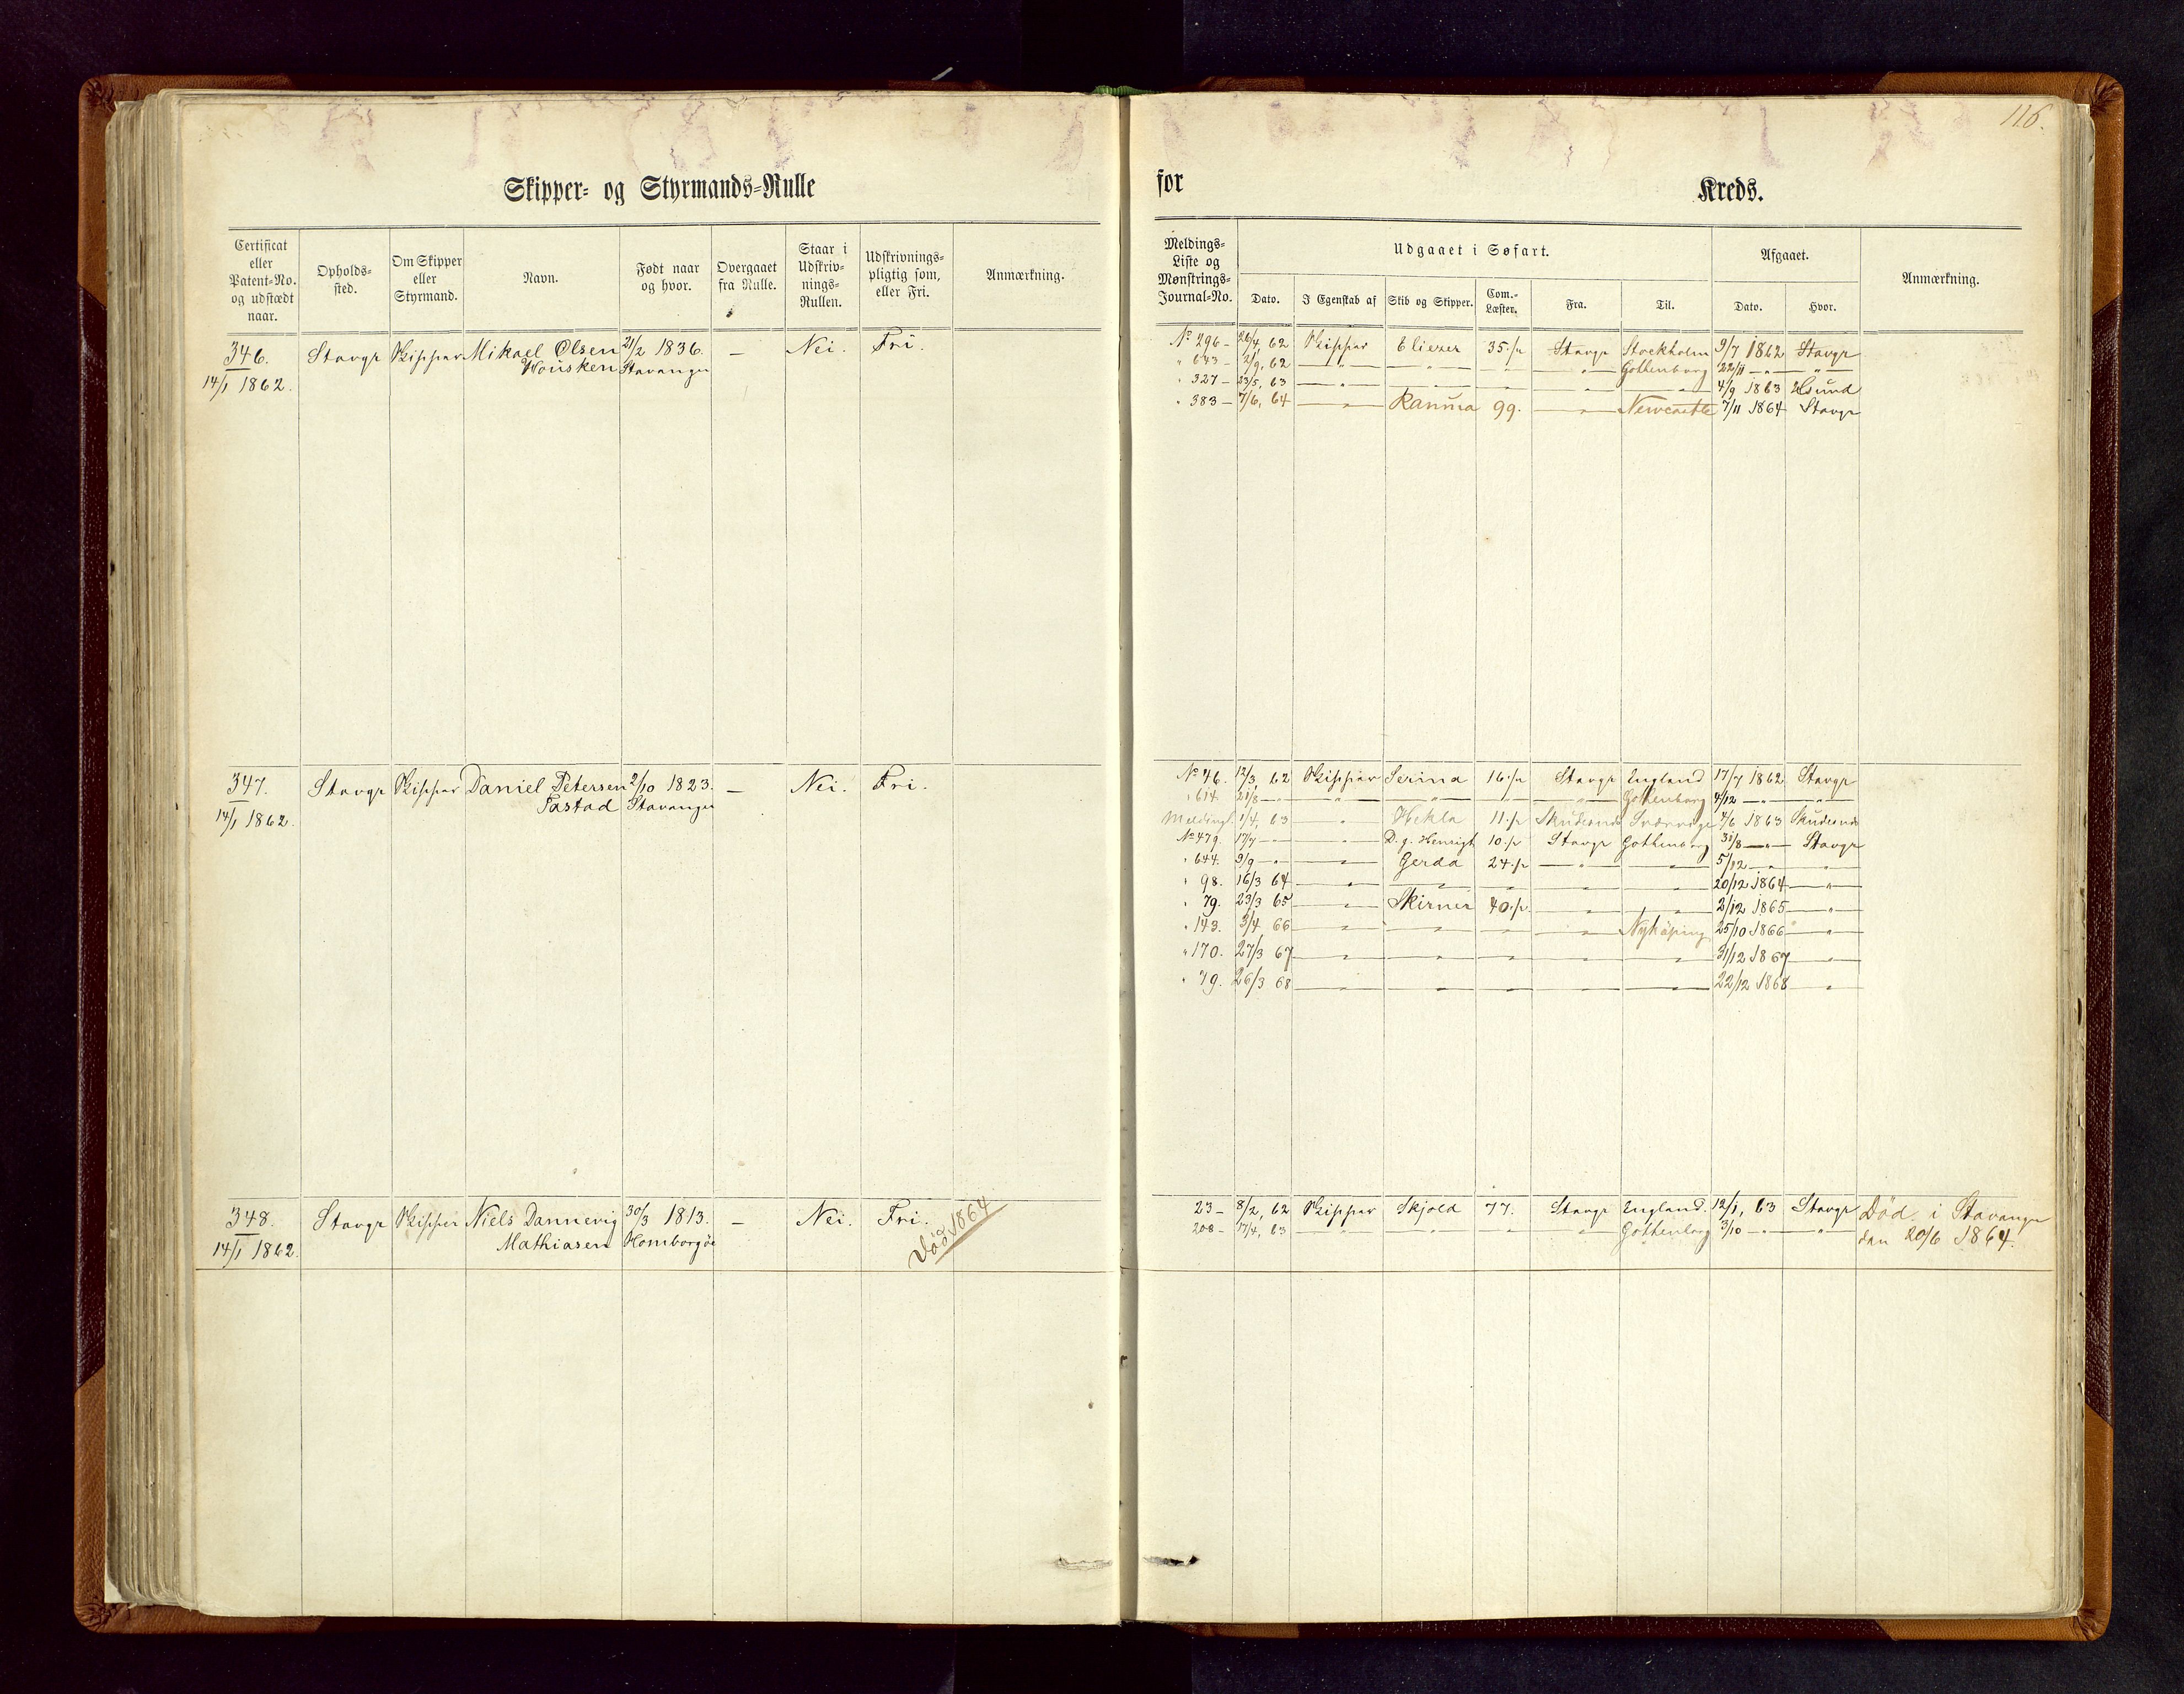 116.
Skipper- og Styrmands-Rulle
for Kreds.
Certificat eller Patent-No. og udstædt naar. Opholds-sted. Om Skipper eller Styrmand. Navn. Født naar og hvor. Overgaaet fra Rulle. Staar i Udskriv-nings-Rullen. Udskrivnings-pligtig som, eller Fri. Anmærkning.
Meldings-Liste og Mønstrings-Journal-No. Udgaaet i Søfart. Afgaaet. Anmærkning.
Dato. I Egenskab af Skib og Skipper. Com.-Læster. Fra. Til. Dato. Hvor.
346. Stavgr Skipper Mikael Olsen 21/2 1836. — Nei. Fri.
Housken Stavanger
14/1 1862.
No 296 – 26/4, 62 Skipper Eliezer 35 Stavgr Stockholm 9/7 1862 Stavgr
" 643 – 2/9, 62 — " — — " — — " — Gothenburg 22/11 — " — — " —
" 327 – 23/5, 63 — " — 4/9 1863 Hsund
" 383 – 7/6, 64 — " — Ranma 99. — " — Newcastle 7/11 1864 Stavgr
347. Stavgr Skipper Daniel Petersen 2/10 1823. — Nei. Fri.
Tastad Stavanger
14/1 1862.
No 46. 12/3, 62 Skipper Serina 16 Stavgr England 17/7 1862 Stavgr
" 614. 21/8 — " — " " " " Gothenburg 4/12 — " — — " —
Meldingl. 1/4, 63 — " — Hekla 11 Skudesnes 7/6 1863 Skudesnes
No 479. 17/7 — " — — " — D. g. Hensigt 10 Stavgr Gothenborg 31/8 — " — Stavgr
" 644. 9/9 — " — — " — Gerda 24 — " — — " — 5/12 — " — — " —
" 98. 16/3 64 — " — — " — — " — — " — — " — 20/12 1864 — " —
" 79. 23/3 65 — " — Skirner 40 — " — — " — 2/12 1865 — " —
" 143. 3/4 66 — " — — " — — " — — " — Nykøping 25/10 1866 — " —
" 170. 27/3 67 — " — — " — — " — — " — — " — 31/12 1867 — " —
" 79. 26/3 68 — " — — " — — " — — " — — " — 22/12 1868 — " —
348. Stavgr Skipper Niels Dannevig 30/3 1813. — Nei. Fri.
Mathiasen Homborgöe
14/1 1862.
Död 1864
23 – 8/2, 62 Skipper Skjold 77. Stavgr England. 12/1, 63 Stavgr Död i Stavanger
208 – 17/4, 63 — " — — " — " — " — Gothenborg 3/10 — " — — " — den 20/6 1864.